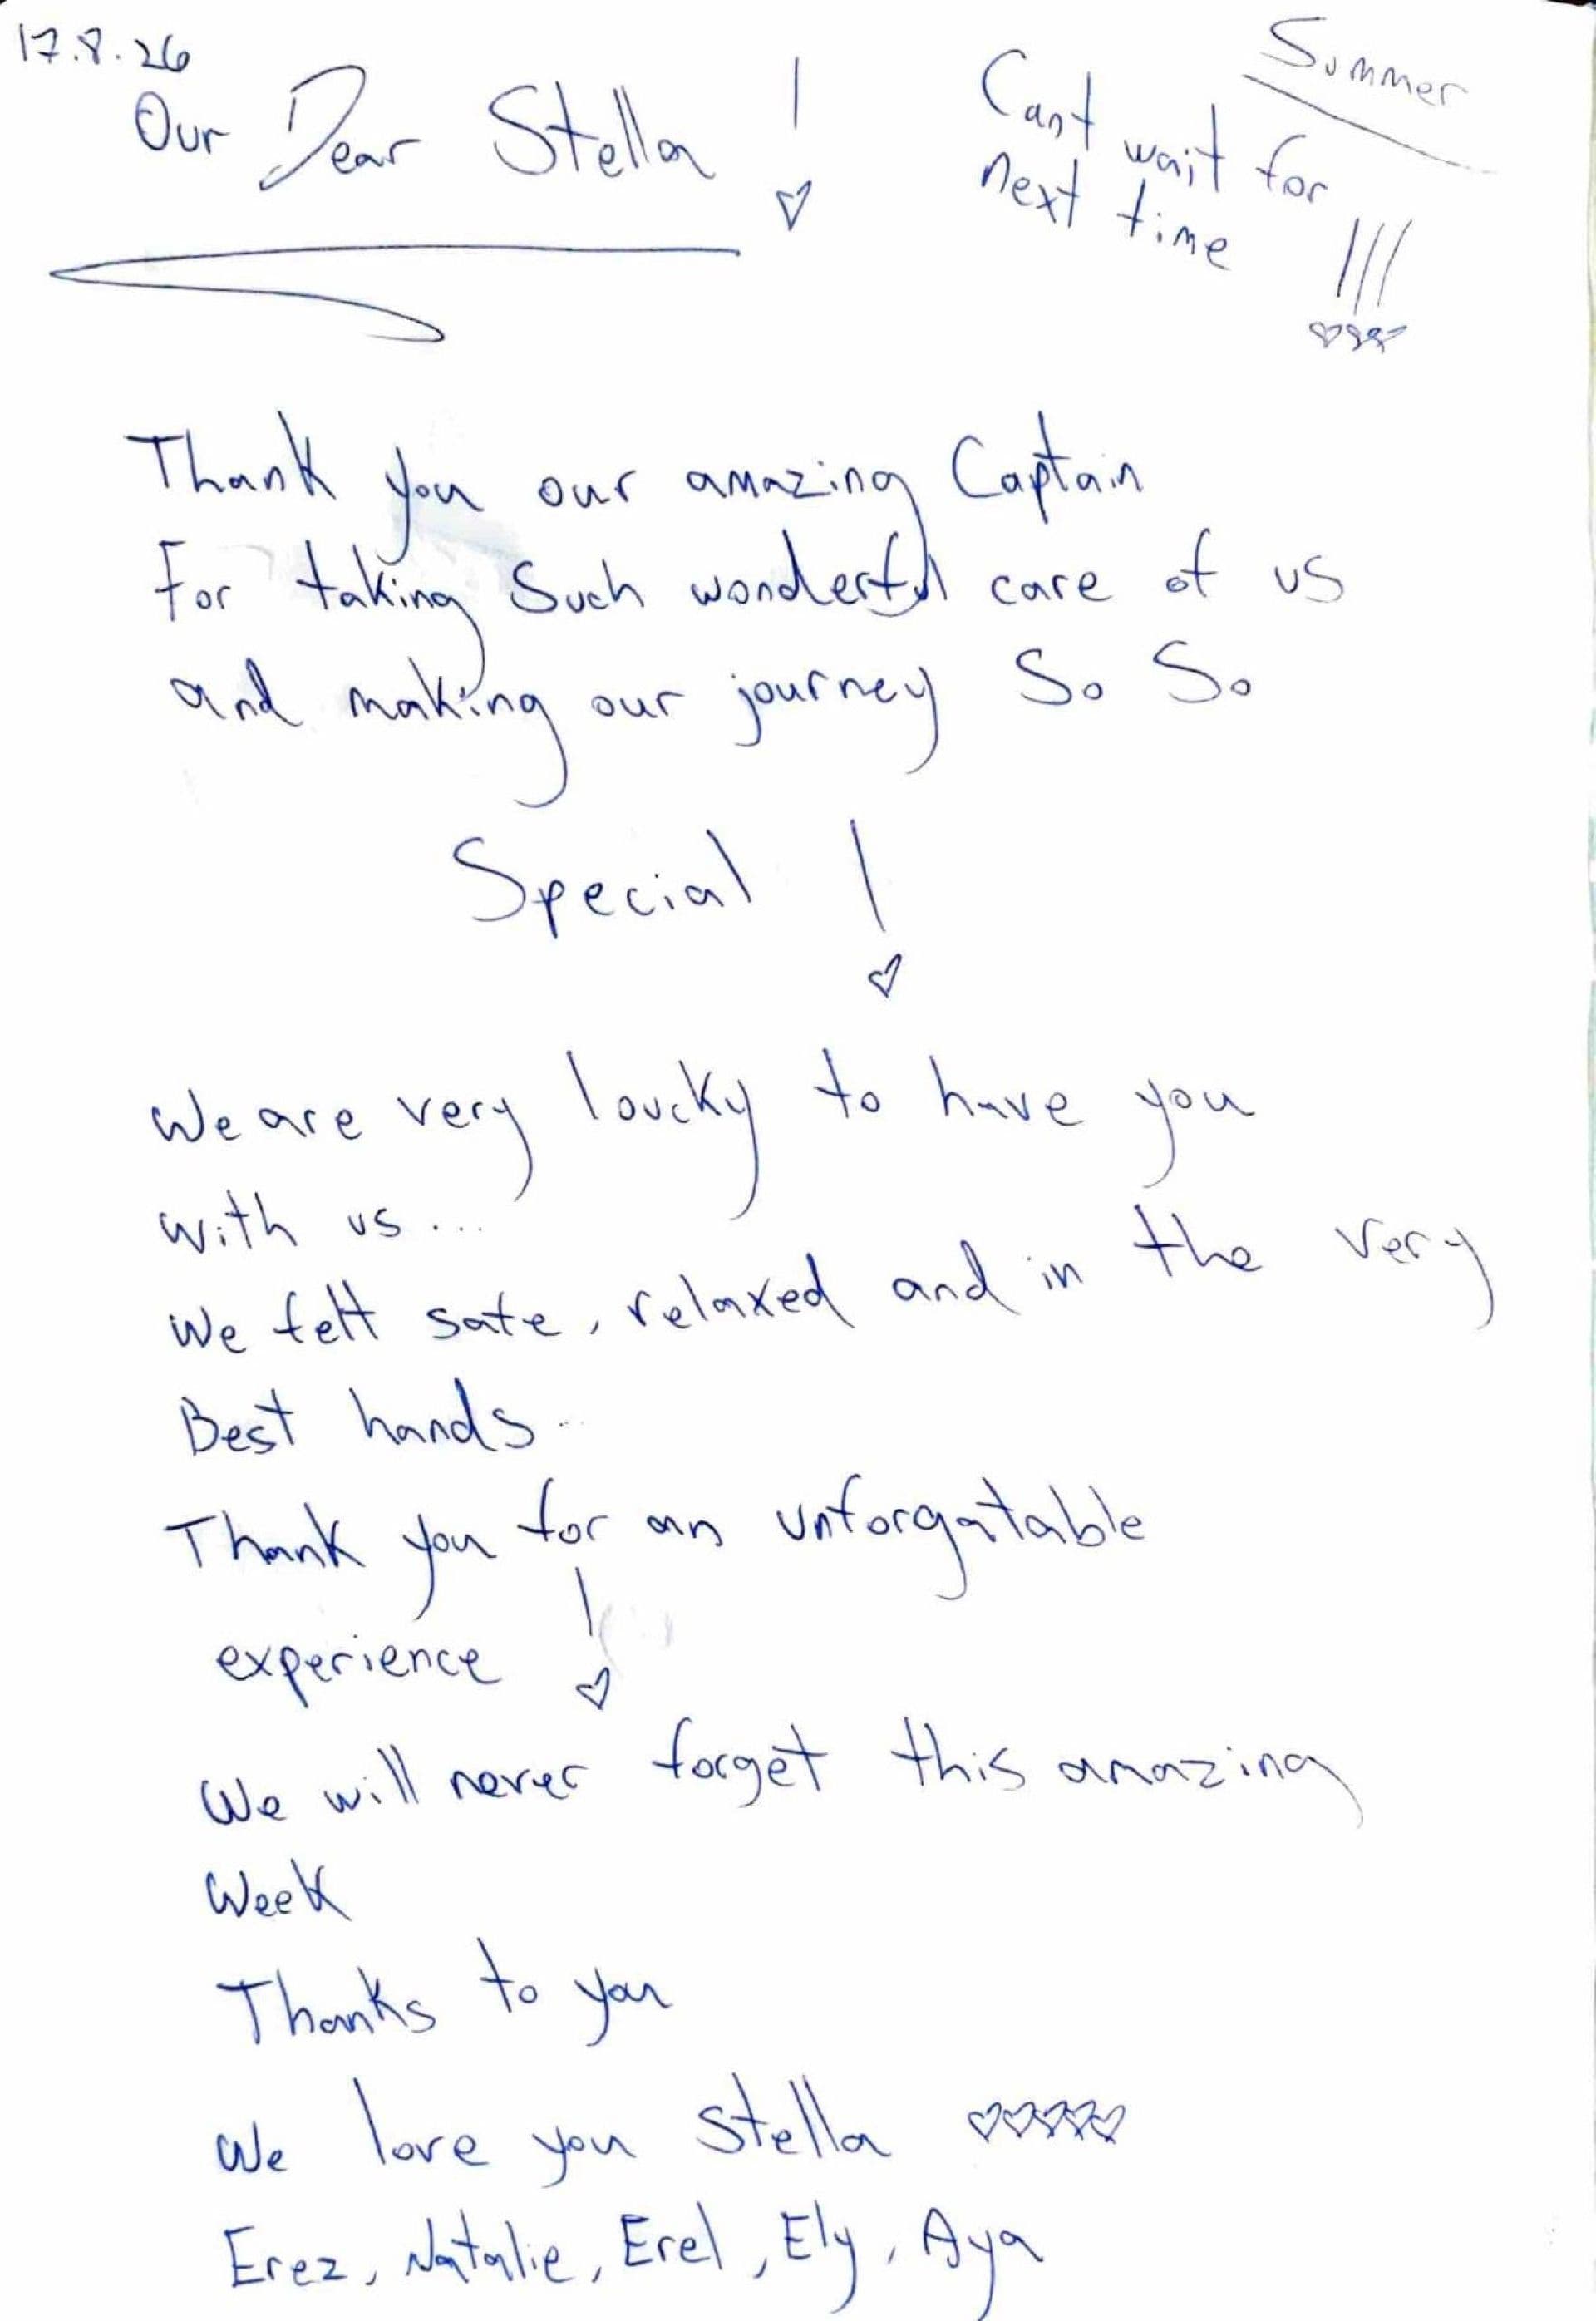 17.8.26
Our Dear Stella !
♡
Summer
Cant wait for
next time !!!
♡♡♡
Thank you our amazing Captain
For taking Such wonderful care of us
and making our journey So So
Special !
♡
We are very loucky to have you
with us ...
We felt safe, relaxed and in the very
Best hands..
Thank you for an unforgatable
experience !
♡
We will never forget this amazing
Week
Thanks to you
We love you Stella ♡♡♡♡♡
Erez, Natalie, Erel, Ely, Aya